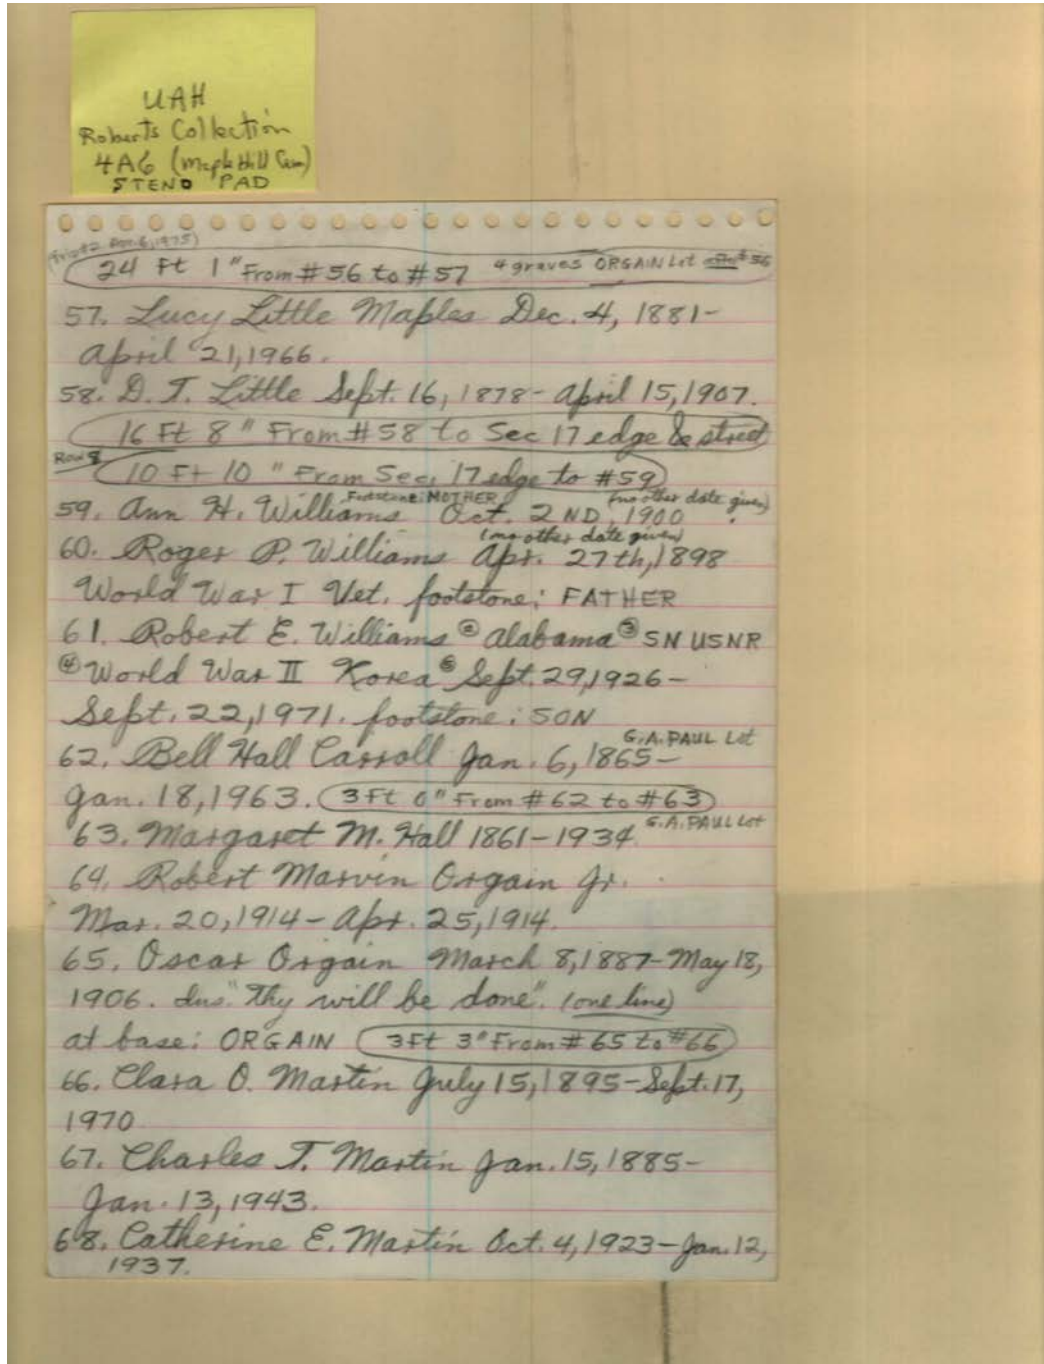 UAH
Roberts Collection
4A6 (Maple Hill Cem)
STENO PAD
(Trip #2 Apr. 6, 1975)
24 Ft 1" From #56 to #57 4 graves ORGAIN Lot #56
57. Lucy Little Maples Dec. 4, 1881-
April 21, 1966.
58. D. T. Little Sept. 16, 1878- April 15, 1907.
16 Ft 8" From #58 to Sec 17 edge & street
Row 8
10 Ft 10" From Sec. 17 edge to #59
Footstone: MOTHER (no other date given)
59. Ann H. Williams Oct. 2ND, 1900.
(no other date given)
60. Roger P. Williams Apr. 27th, 1898
World War I Vet. footstone: FATHER
61. Robert E. Williams ② Alabama ③ SN USNR
④ World War II Korea ⑤ Sept. 29, 1926-
Sept. 22, 1971. footstone: SON
G.A. PAUL Lot
62. Bell Hall Carroll Jan. 6, 1865-
Jan. 18, 1963. 3 Ft 0" From #62 to #63
63. Margaret M. Hall 1861-1934 G.A. PAUL Lot
64. Robert Marvin Orgain Jr.
Mar. 20, 1914- Apr. 25, 1914.
65. Oscar Orgain March 8, 1887- May 18,
1906. Ins "Thy will be done". (one line)
at base: ORGAIN 3 Ft 3" From #65 to #66
66. Clara O. Martin July 15, 1895- Sept. 17,
1970
67. Charles T. Martin Jan. 15, 1885-
Jan. 13, 1943.
68. Catherine E. Martin Oct. 4, 1923- Jan. 12,
1937.